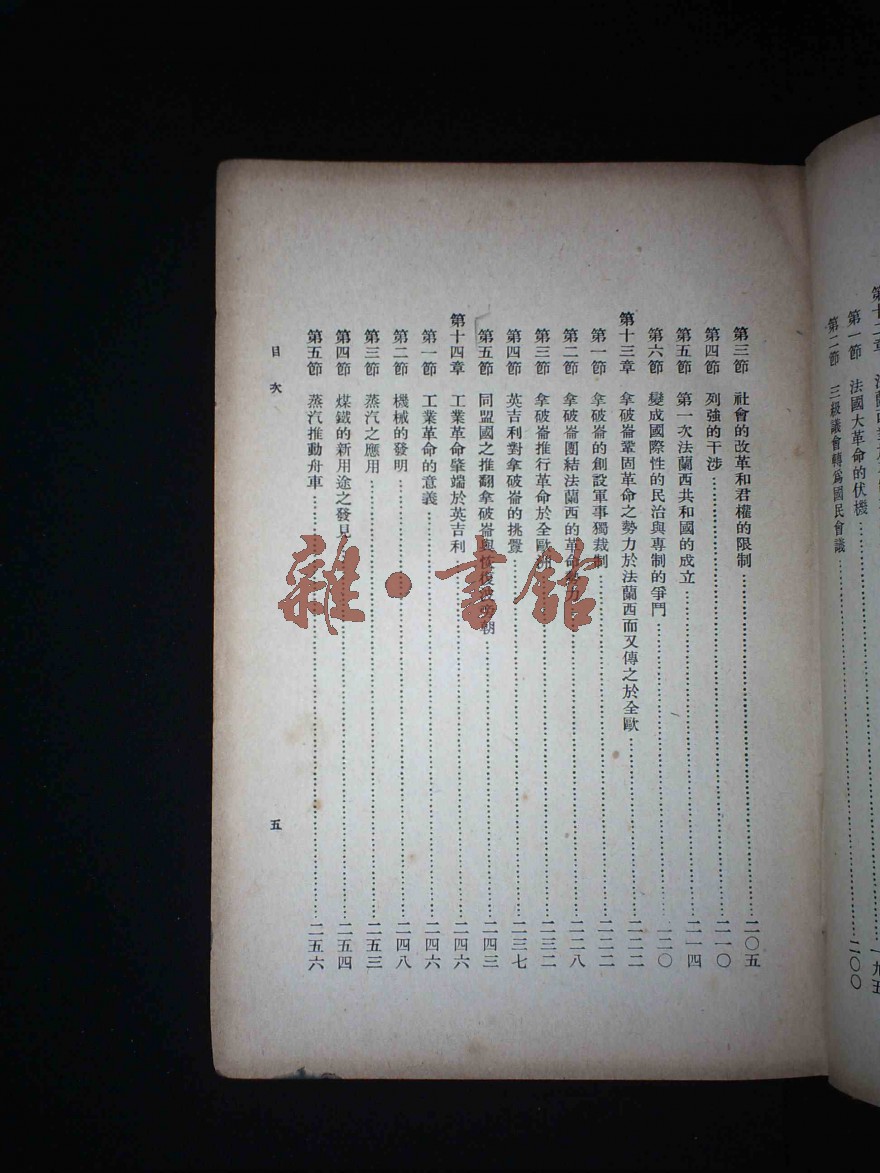 第一節　法國大革命的伏機
一九五
第二節　三級議會轉爲國民會議
二〇〇
第三節　社會的改革和君權的限制
二〇五
第四節　列強的干涉
二一〇
第五節　第一次法蘭西共和國的成立
二一四
第六節　變成國際性的民治與專制的爭鬥
二二〇
第十三章　拿破崙鞏固革命之勢力於法蘭西而又傳之於全歐
二二二
第一節　拿破崙的創設軍事獨裁制
二二二
第二節　拿破崙團結法蘭西的革命勢力
二二八
第三節　拿破崙推行革命於全歐洲
二三二
第四節　英吉利對拿破崙的挑釁
二三七
第五節　同盟國之推翻拿破崙與恢復
朝
二四三
第十四章　工業革命肇端於英吉利
二四六
第一節　工業革命的意義
二四六
第二節　機械的發明
二四八
第三節　蒸汽之應用
二五三
第四節　煤鐵的新用途之發見
二五四
第五節　蒸汽推動舟車
二五六
目次
五
雜·書館